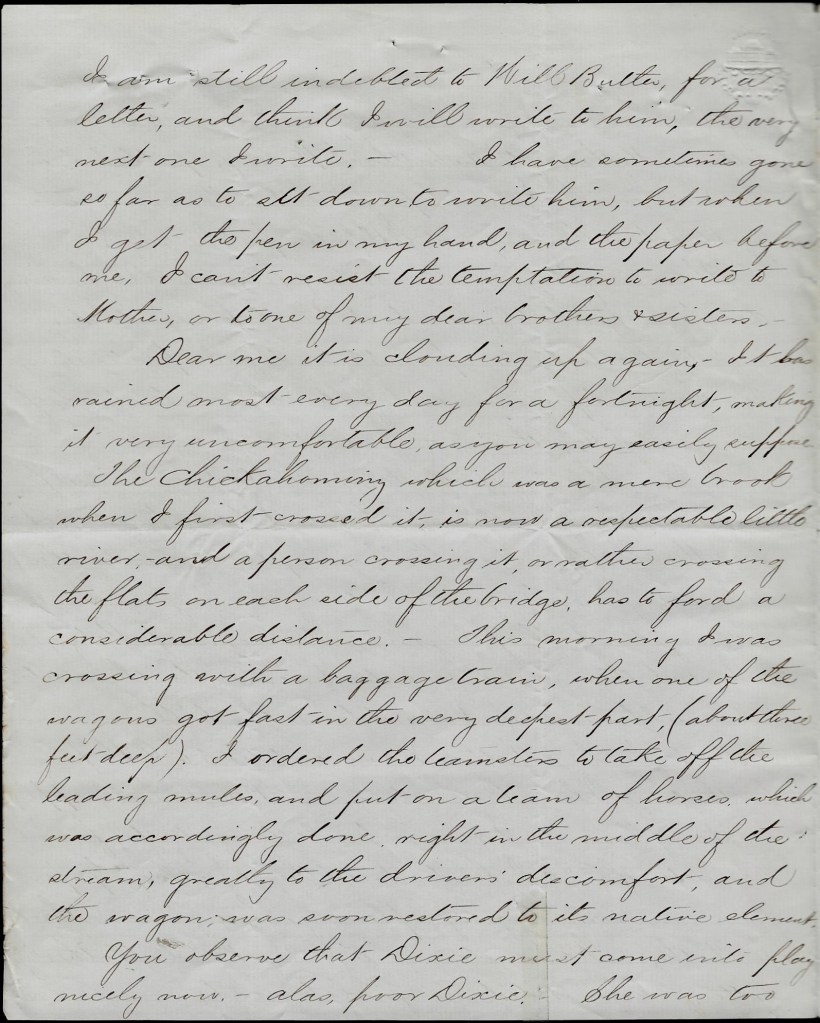 I am still indebted to Will Butler, for a
letter, and think I will write to him, the very
next one I write. – I have sometimes gone
so far as to sit down to write him, but when
I get the pen in my hand, and the paper before
me, I can't resist the temptation to write to
Mother, or to one of my dear brothers & sisters. –
Dear me it is clouding up again, – It has
rained most every day for a fortnight, making
it very uncomfortable, as you may easily suppose
The Chickahominy which was a mere brook
when I first crossed it, is now a respectable little
river, – and a person crossing it, or rather crossing
the flats on each side of the bridge, has to ford a
considerable distance. – This morning I was
crossing with a baggage train, when one of the
wagons got fast in the very deepest part, (about three
feet deep). I ordered the teamsters to take off the
leading mules, and put on a team of horses, which
was accordingly done, right in the middle of the
stream, greatly to the drivers' discomfort, and
the wagon, was soon restored to its native element.
You observe that Dixie must come into play
nicely now. – alas, poor Dixie. – She was too